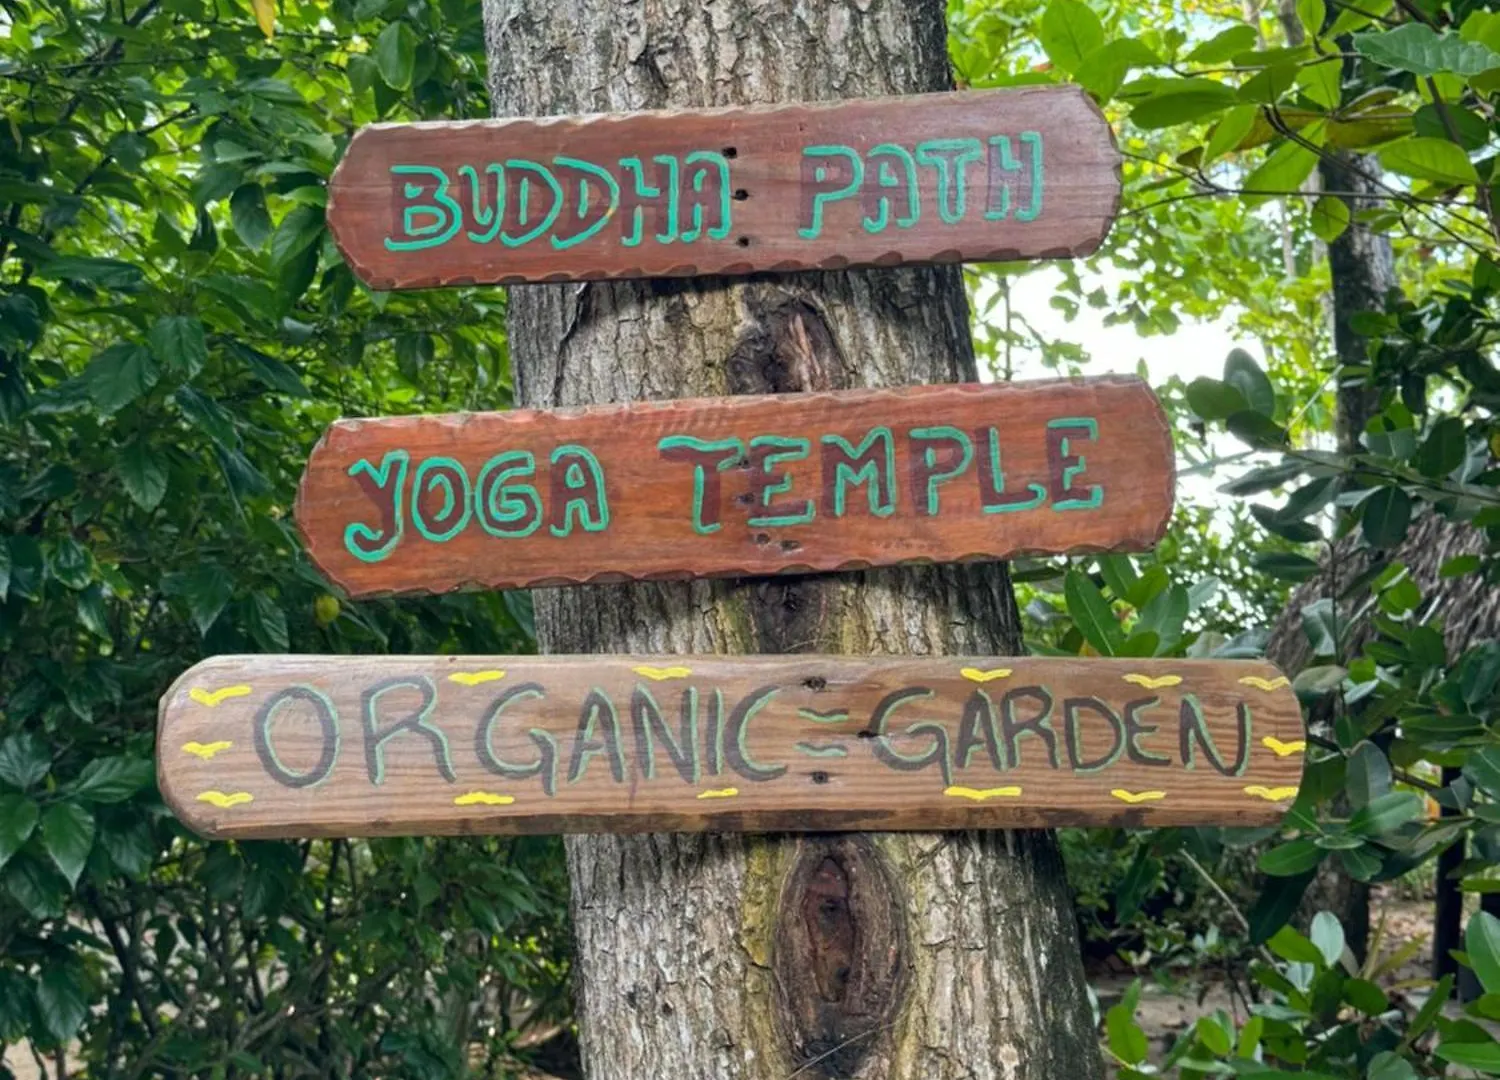 BUDDHA PATH
YOGA TEMPLE
ORGANIC GARDEN